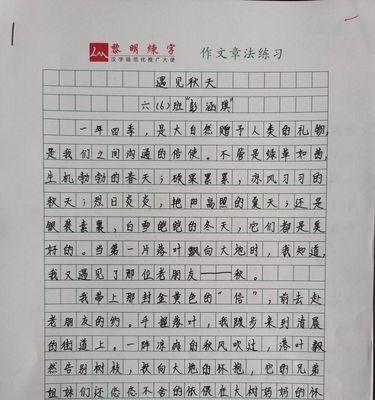 黎明练字
汉字规范化推广大使
作文章法练习
遇见秋天
六(6)班“彭涵琪”
一年四季，是大自然赠予人类的礼物，
是我们之间沟通的信使。不管是绿草如茵，
生机勃勃的春天；硕果累累，凉风习习的
秋天；烈日炎炎，艳阳高照的夏天；还是
银装素裹，白雪皑皑的冬天，它们都是美
好的。当第一片落叶飘向大地时，我知道，
我又遇见了那位老朋友——秋。
我带上那封金黄色的“信”，前去赴
老朋友的约。手握落叶，我跑步来到清晨
的街道上。一阵凉爽的秋风吹过，落叶飘
然告别树枝，敬向大地的怀抱，它的兄弟
姐妹们还恋恋不舍的依偎在大树妈妈的怀